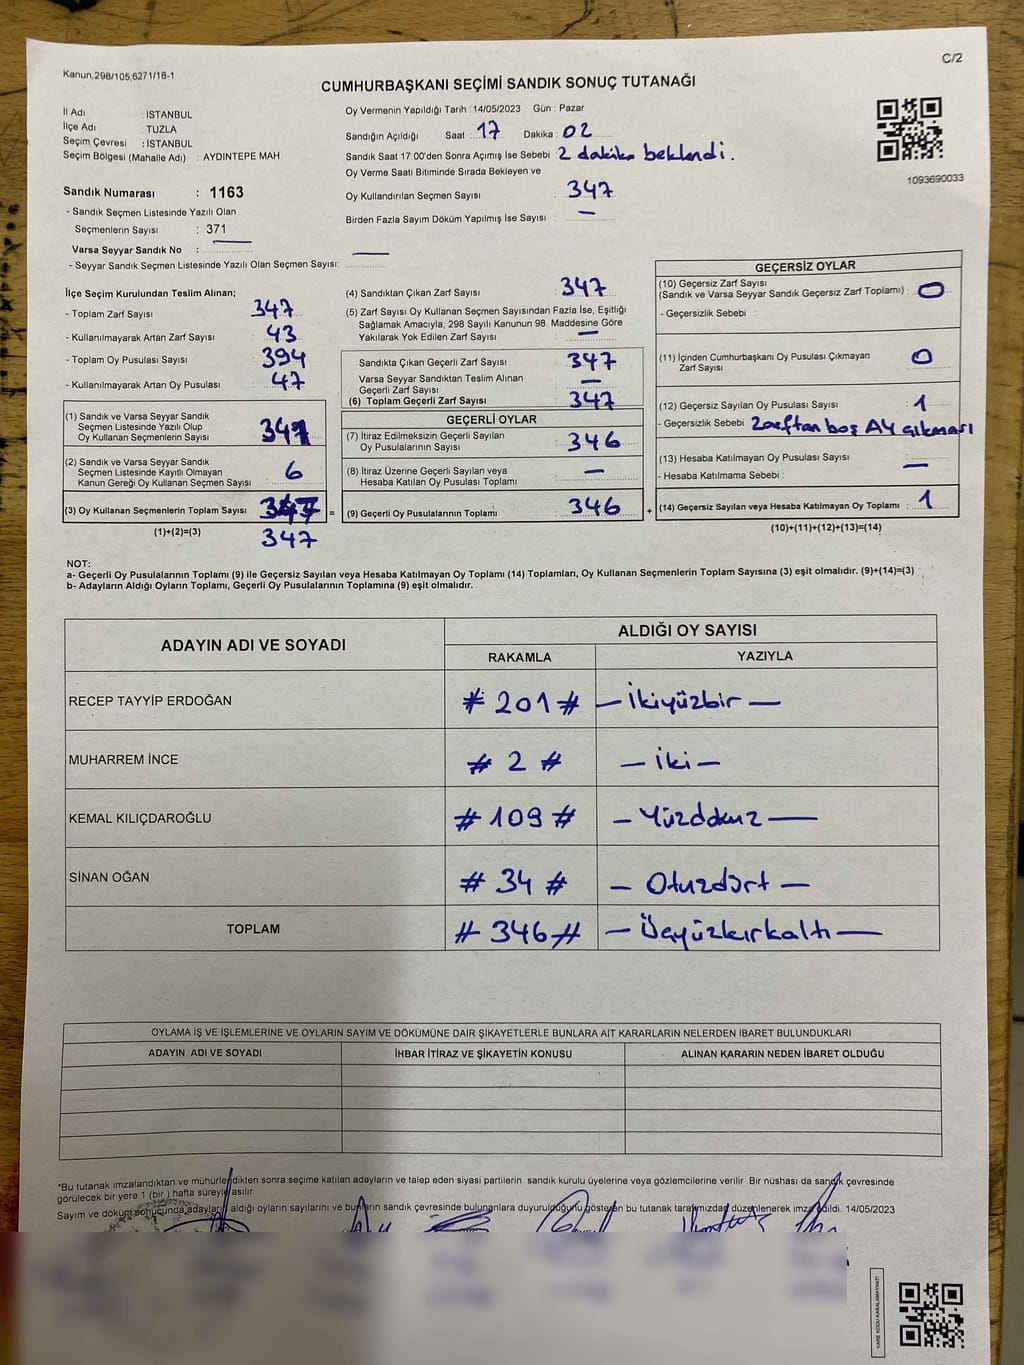 Kanun.298/105,6271/18-1
C/2
CUMHURBAŞKANI SEÇİMİ SANDIK SONUÇ TUTANAĞI
İl Adı : İSTANBUL
İlçe Adı : TUZLA
Seçim Çevresi : İSTANBUL
Seçim Bölgesi (Mahalle Adı) : AYDINTEPE MAH
Sandık Numarası : 1163
- Sandık Seçmen Listesinde Yazılı Olan
Seçmenlerin Sayısı : 371
Varsa Seyyar Sandık No :
- Seyyar Sandık Seçmen Listesinde Yazılı Olan Seçmen Sayısı: —
Oy Vermenin Yapıldığı Tarih : 14/05/2023 Gün : Pazar
Sandığın Açıldığı Saat : 17 Dakika : 02
Sandık Saat 17:00'den Sonra Açımış İse Sebebi : 2 dakika beklendi.
Oy Verme Saati Bitiminde Sırada Bekleyen ve
Oy Kullandırılan Seçmen Sayısı : 347
Birden Fazla Sayım Döküm Yapılmış İse Sayısı : —
1093690033
İlçe Seçim Kurulundan Teslim Alınan;
- Toplam Zarf Sayısı : 347
- Kullanılmayarak Artan Zarf Sayısı : 43
- Toplam Oy Pusulası Sayısı : 394
- Kullanılmayarak Artan Oy Pusulası : 47
(1) Sandık ve Varsa Seyyar Sandık
Seçmen Listesinde Yazılı Olup
Oy Kullanan Seçmenlerin Sayısı :
(2) Sandık ve Varsa Seyyar Sandık
Seçmen Listesinde Kayıtlı Olmayan
Kanun Gereği Oy Kullanan Seçmen Sayısı : 6
(3) Oy Kullanan Seçmenlerin Toplam Sayısı : 347 =
(1)+(2)=(3) 347
(4) Sandıktan Çıkan Zarf Sayısı : 347
(5) Zarf Sayısı Oy Kullanan Seçmen Sayısından Fazla İse, Eşitliği
Sağlamak Amacıyla; 298 Sayılı Kanunun 98. Maddesine Göre
Yakılarak Yok Edilen Zarf Sayısı : —
Sandıkta Çıkan Geçerli Zarf Sayısı : 347
Varsa Seyyar Sandıktan Teslim Alınan
Geçerli Zarf Sayısı : —
(6) Toplam Geçerli Zarf Sayısı : 347
GEÇERLİ OYLAR
(7) İtiraz Edilmeksizin Geçerli Sayılan
Oy Pusulalarının Sayısı : 346
(8) İtiraz Üzerine Geçerli Sayılan veya
Hesaba Katılan Oy Pusulası Toplamı : —
(9) Geçerli Oy Pusulalarının Toplamı : 346 +
GEÇERSİZ OYLAR
(10) Geçersiz Zarf Sayısı
(Sandık ve Varsa Seyyar Sandık Geçersiz Zarf Toplamı) : 0
- Geçersizlik Sebebi :
(11) İçinden Cumhurbaşkanı Oy Pusulası Çıkmayan
Zarf Sayısı : 0
(12) Geçersiz Sayılan Oy Pusulası Sayısı : 1
- Geçersizlik Sebebi : Zarftan boş A4 çıkması
(13) Hesaba Katılmayan Oy Pusulası Sayısı : —
- Hesaba Katılmama Sebebi :
(14) Geçersiz Sayılan veya Hesaba Katılmayan Oy Toplamı : 1
(10)+(11)+(12)+(13)=(14)
NOT:
a- Geçerli Oy Pusulalarının Toplamı (9) ile Geçersiz Sayılan veya Hesaba Katılmayan Oy Toplamı (14) Toplamları, Oy Kullanan Seçmenlerin Toplam Sayısına (3) eşit olmalıdır. (9)+(14)=(3)
b- Adayların Aldığı Oyların Toplamı, Geçerli Oy Pusulalarının Toplamına (9) eşit olmalıdır.
ADAYIN ADI VE SOYADI ALDIĞI OY SAYISI
RAKAMLA YAZIYLA
RECEP TAYYİP ERDOĞAN # 201 # — İkiyüzbir —
MUHARREM İNCE # 2 # — İki —
KEMAL KILIÇDAROĞLU # 109 # — Yüzdokuz —
SİNAN OĞAN # 34 # — Otuzdört —
TOPLAM # 346 # — Üçyüzkırkaltı —
OYLAMA İŞ VE İŞLEMLERİNE VE OYLARIN SAYIM VE DÖKÜMÜNE DAİR ŞİKAYETLERLE BUNLARA AİT KARARLARIN NELERDEN İBARET BULUNDUKLARI
ADAYIN ADI VE SOYADI İHBAR İTİRAZ VE ŞİKAYETİN KONUSU ALINAN KARARIN NEDEN İBARET OLDUĞU
*Bu tutanak imzalandıktan ve mühürlendikten sonra seçime katılan adayların ve talep eden siyasi partilerin sandık kurulu üyelerine veya gözlemcilerine verilir. Bir nüshası da sandık çevresinde
görülecek bir yere 1 (bir) hafta süreyle asılır.
Sayım ve döküm sonucunda,adayların aldığı oyların sayılarını ve bunların sandık çevresinde bulunanlara duyurulduğunu gösteren bu tutanak tarafımızdan düzenlenerek imza edildi. 14/05/2023
KARE KODU KARALAMAYINIZ!